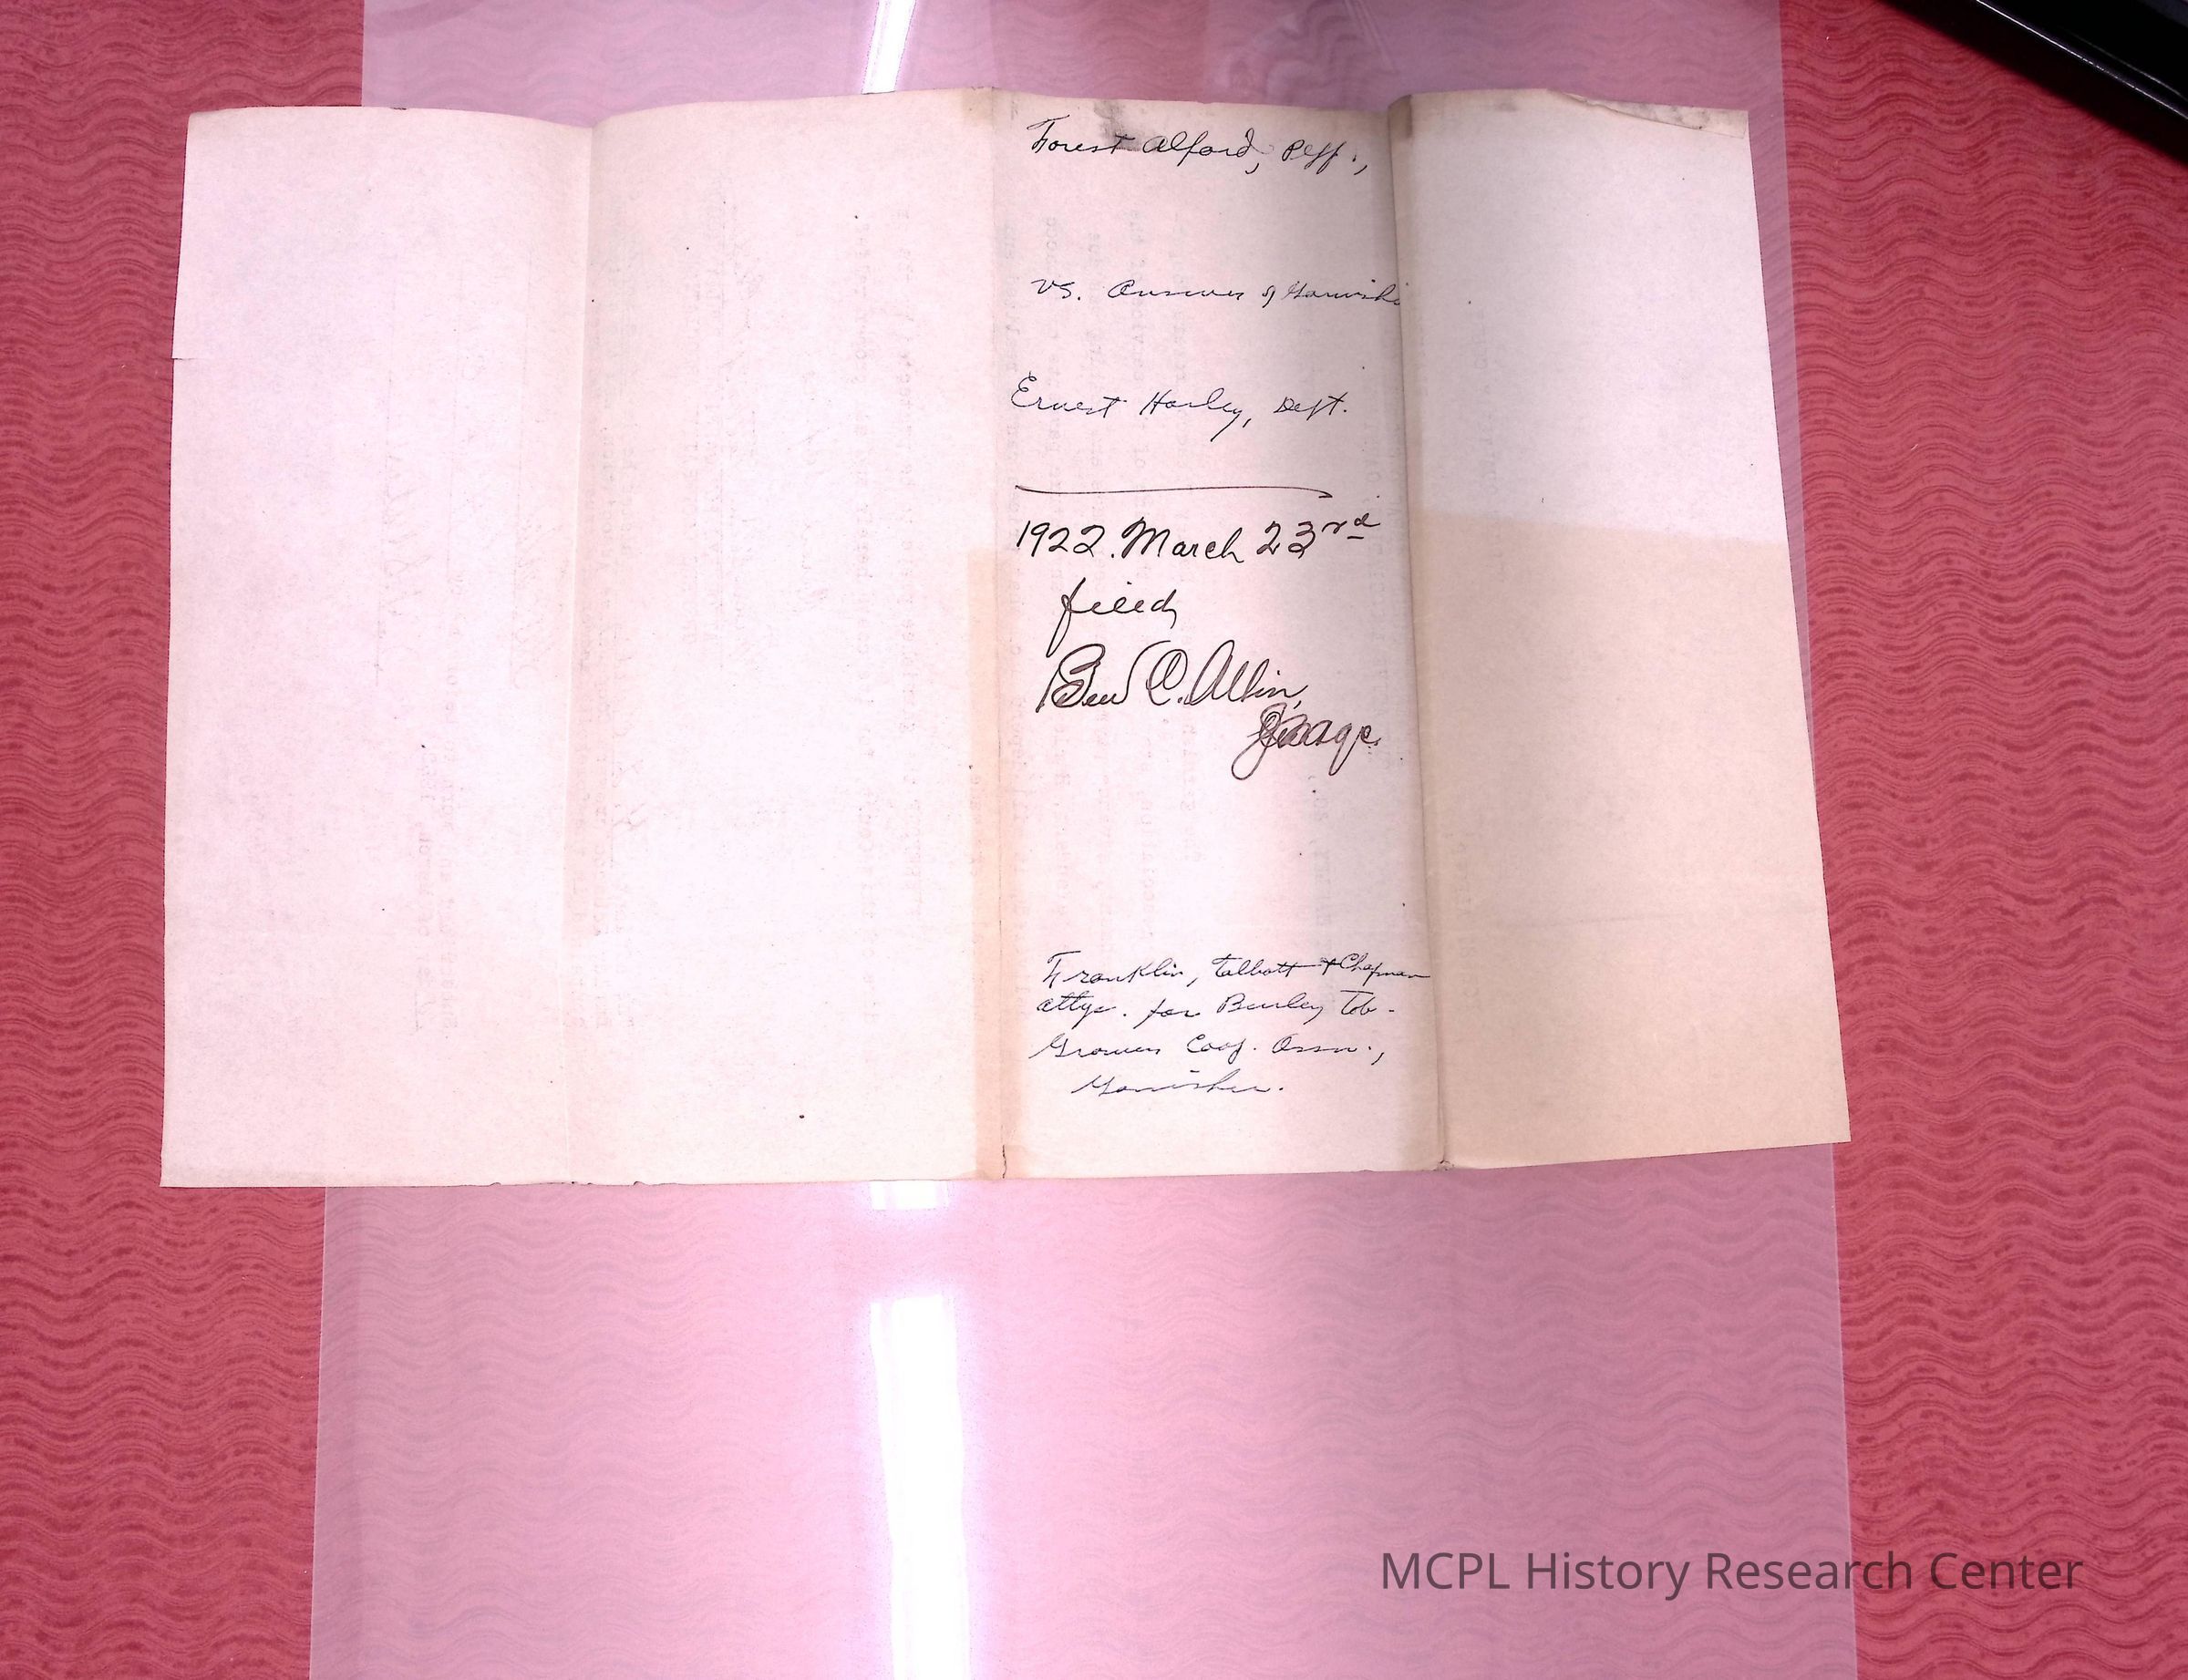 Forest Alford, Plff.,
vs. Answer of Garnishe
Ernest Harley, Deft.
1922. March 23rd
filed
Ben C. Allin,
Judge.
Franklin, Talbott & Chapman
attys. for Burley Tob.
Growers Coop. Assn.,
Garnishee.
MCPL History Research Center